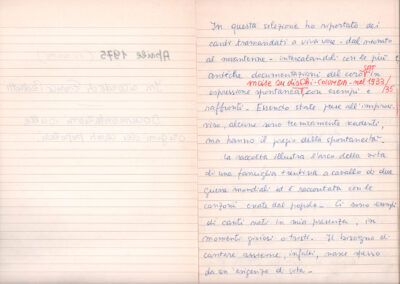 APRILE 1975
Documentazione
In questa selezione ho riportato dei
canti tramandati a viva voce - dal neonato
al novantenne - intercalandoli con le più
antiche documentazioni del coro SAT in
incise su dischi - COLUMBIA - nel 1933/
/35
espressione spontanea, con esempi e
raffronti. Essendo state prese all'improv-
viso, alcune sono tecnicamente scadenti,
ma hanno il pregio della spontaneità.
La raccolta illustra l'arco della vita
di una famiglia trentina a cavallo di due
guerre mondiali ed è raccontata con le
canzoni create dal popolo. Ci sono esempi
di canti nati in mia presenza, in
momenti gioiosi o tristi. Il bisogno di
cantare assieme, infatti, nasce spesso
da un'esigenza di vita.